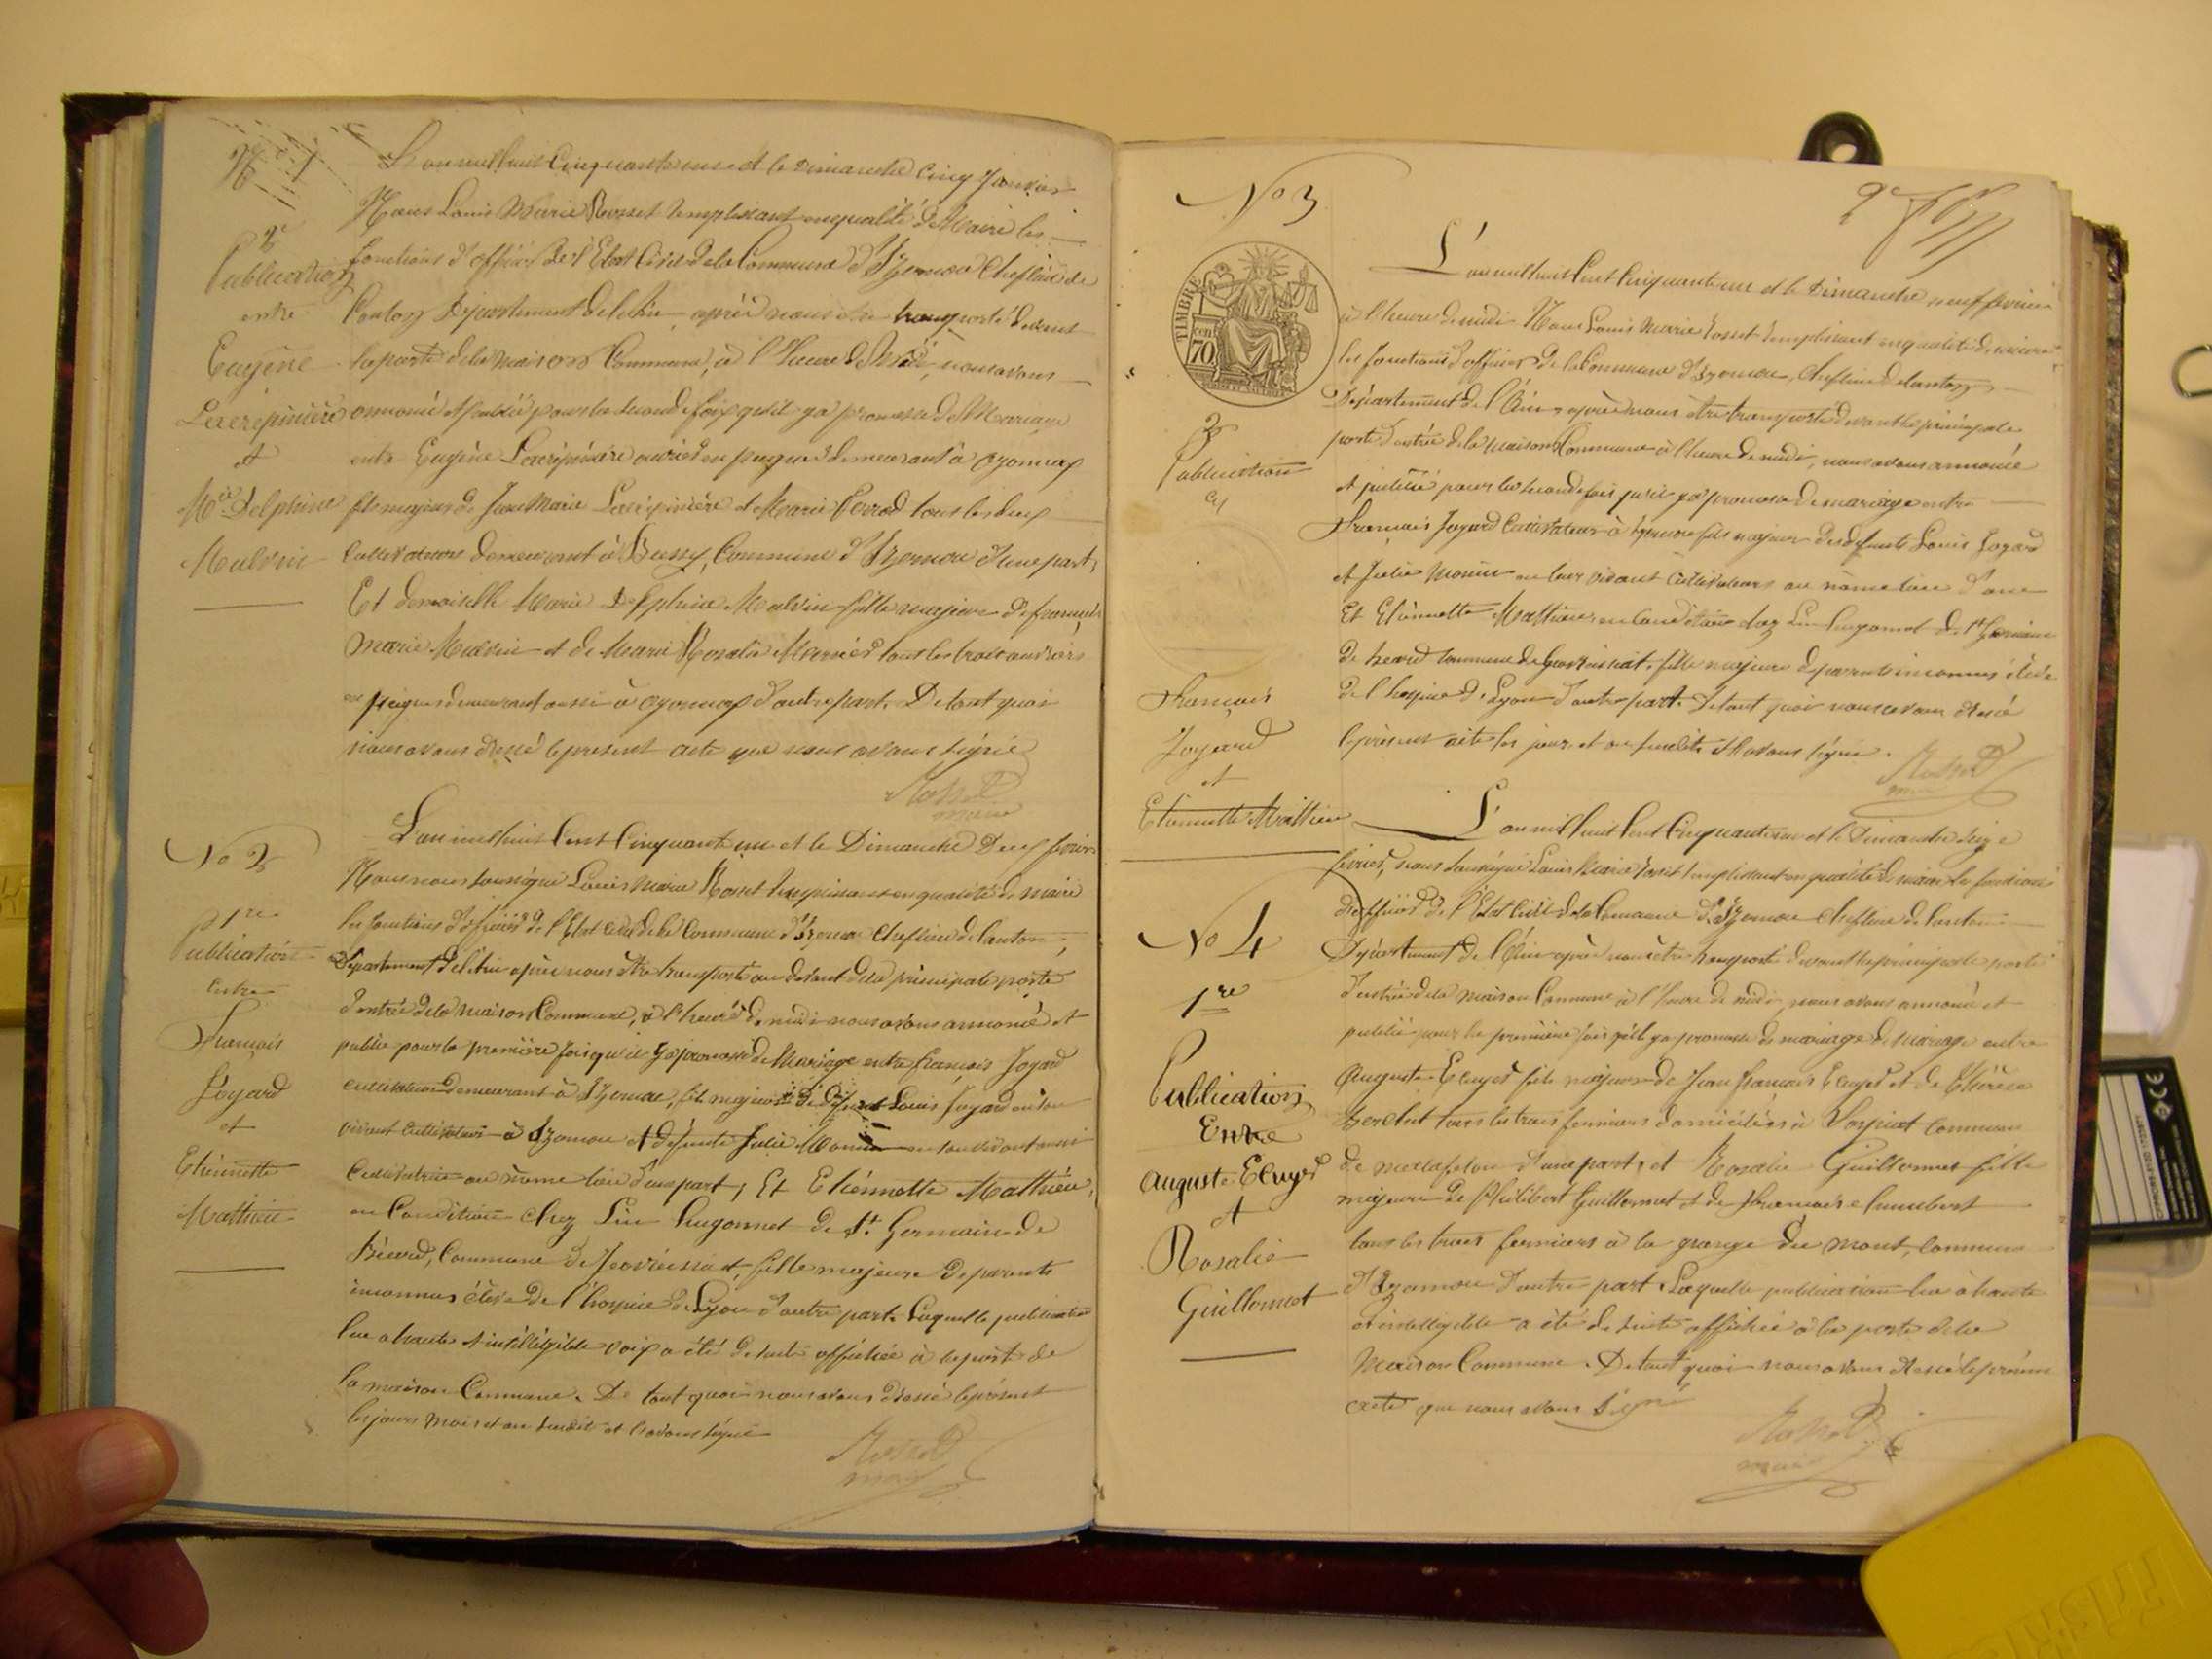 N° 1
2e
Publication
entre
Eugène
Lacrépinière
et
Mie Delphine
Malvin
L'an mil huit Cinquante un et le Dimanche Cinq Janvier
Nous Louis Marie Rosset remplissant en qualité de Maire les
fonctions d'officier de l'Etat Civil de la Commune d'Izernou Cheflieu de
Canton Département de l'Ain, après nous être transporté devant
la porte de la maison Commune, à l'heure de Midi, nous avons
annoncé et publié pour la seconde fois qu'il y a promesse de Mariage
entre Eugène Lacrépinière ouvrier en peignes demeurant à Oyonnax
fils majeur de Jean Marie Lacrépinière et Marie Perrod tous les deux
Cultivateurs demeurant à Bussy, Commune d'Izernou d'une part,
Et demoiselle Marie Delphine Malvin fille majeure de françois
Marie Malvin et de Marie Rosalie Mermet tous les trois ouvriers
en peignes demeurant aussi à Oyonnax d'autre part. De tout quoi
nous avons dressé le présent acte que nous avons signé
Rosset
maire
No 2
1re
Publication
Entre
François
Joyard
et
Etiennette
Mathieu
L'an mil huit Cent Cinquante un et le Dimanche Deux février
Nous nous soussigné Louis Marie Rosset remplissant en qualité de maire
les fonctions d'officier de l'Etat Civil de la Commune d'Izernou Cheflieu de Canton,
Département de l'Ain après nous être transporté au devant de la principale porte
d'entrée de la maison Commune, à l'heure de midi nous avons annoncé et
publié pour la première fois qu'il y a promesse de Mariage entre françois Joyard
cultivateur demeurant à Izernou, fils majeur de défunt Louis Joyard en son
vivant cultivateur à Izernou et défunte Julie Monin en son vivant aussi
Cultivatrice au même lieu d'une part; Et Etiennette Mathieu,
en Condition chez Lin Hugonnet de St. Germain de
Béard, Commune de Geovreissiat, fille majeure de parents
inconnus élève de l'hospice de Lyon d'autre part. Laquelle publication
lue à haute et intelligible voix a été de suite affichée à la porte de
la maison Commune. De tout quoi nous avons dressé le présent
les jours mois et an susdit et l'avons signé
Rosset
maire
No 3
2e
TIMBRE
cen
70
2e
Publication
François
Joyard
et
Etiennette Mathieu
L'an mil huit Cent Cinquante un et le Dimanche neuf février
à l'heure de midi Nous Louis Marie Rosset remplissant en qualité de maire
les fonctions d'officier de la Commune d'Izernou, Cheflieu de Canton
Département de l'Ain, après nous être transporté devant la principale
porte d'entrée de la maison Commune à l'heure de midi, nous avons annoncé
et publié pour la seconde fois qu'il y a promesse de mariage entre
François Joyard Cultivateur à Izernou fils majeur des défunts Louis Joyard
et Julie Monin en leur vivant Cultivateurs au même lieu d'une
Et Etiennette Mathieu en Condition chez Lin Hugonnet de St Germain
de Beard Commune de Geovreissiat, fille majeure de parents inconnus élève
de l'hospice de Lyon d'autre part. De tout quoi nous avons dressé
le présent acte les jour et an susdits et l'avons signé.
Rosset
maire
No 4
1re
Publication
Entre
Auguste Ecuyer
et
Rosalie
Guillermet
L'an mil huit Cent Cinquante un et le Dimanche seize
février, nous soussigné Louis Marie Rosset remplissant en qualité de maire les fonctions
d'officier de l'Etat Civil de la Commune d'Izernou Cheflieu de Canton
Département de l'Ain après nous être transporté devant la principale porte
d'entrée de la maison Commune à l'heure de midi, nous avons annoncé et
publié pour la première fois qu'il y a promesse de mariage de mariage entre
Auguste Ecuyer fils majeur de Jean françois Ecuyer et de Thérèse
tous les trois fermiers domiciliés à Sorpiat Commune
de Matafelon d'une part, et Rosalie Guillermet fille
majeure de Philibert Guillermet et de françoise humbert
tous les trois fermiers à la grange du mont, Commune
d'Izernou d'autre part. Laquelle publication lue à haute
et intelligible a été de suite affichée à la porte de la
Maison Commune. De tout quoi nous avons dressé le présent
acte que nous avons signé
Rosset
maire